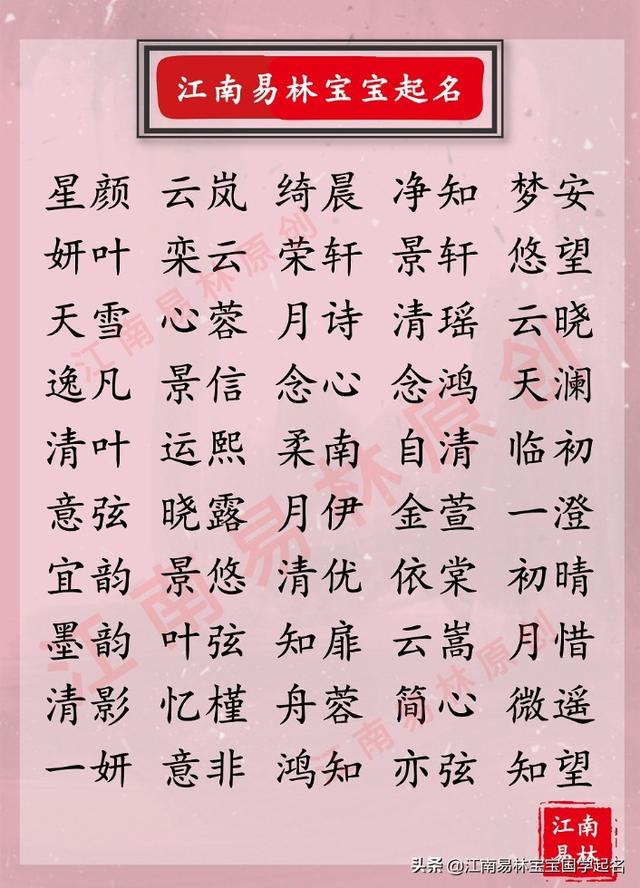 江南易林宝宝起名
星颜 云岚 绮晨 净知 梦安
妍叶 栾云 荣轩 景轩 悠望
天雪 心蓉 月诗 清瑶 云晓
逸凡 景信 念心 念鸿 天澜
清叶 运熙 柔南 自清 临初
意弦 晓露 月伊 金萱 一澄
宜韵 景悠 清优 依棠 初晴
墨韵 叶弦 知扉 云嵩 月惜
清影 忆槿 舟蓉 简心 微遥
一妍 意非 鸿知 亦弦 知望
江南易林原创
江南易林原创
江南易林原创
江南
易林
头条 @江南易林宝宝国学起名